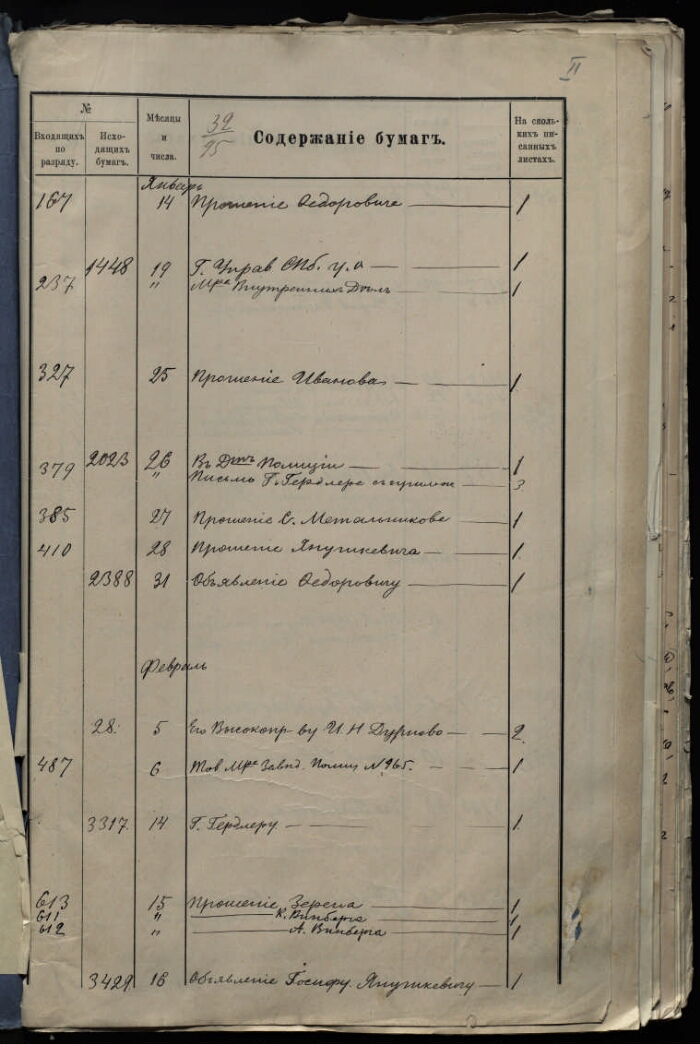 II
№
Входящихъ по разряду.
Исходящихъ бумагъ.
Мѣсяцы и числа.
32/95
Содержаніе бумагъ.
На сколькихъ писанныхъ листахъ.
Январь
167 14 Прошеніе Ѳедоровича — 1
1448 19 Г. Управ. СПб. — 1
237 " М-ра Внутреннихъ Дѣлъ — 1
327 25 Прошеніе Иванова — 1
2023 26 Въ Д-тъ Полиціи — 1
379 " Письмо Г. Гердлера съ — 3
385 27 Прошеніе С. Метальникова — 1
410 28 Прошеніе Янушкевича — 1
2388 31 Объявленіе Ѳедоровичу — 1
Февраль
28. 5 Его Высокопр-ву И. Н Дурново — 2.
487 6 Тов. М-ра Завѣд. Полиц. № 965. — 1
3317. 14 Г. Гердлеру. — 1
613 15 Прошеніе Зерена — 1
611 " — К. Винберга — 1
612 " — А. Винберга — 1
3429 16 Объявленіе Іосифу. Янушкевичу — 1